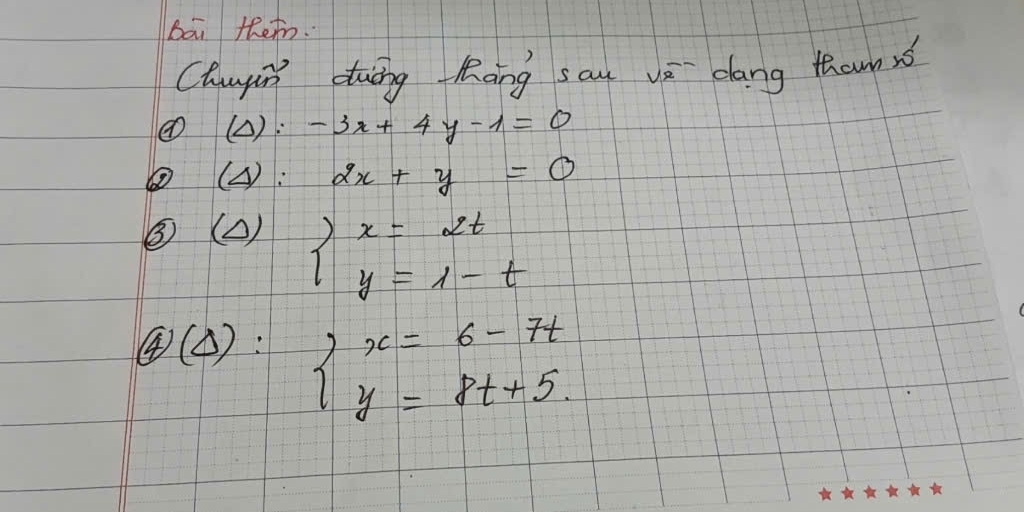 Bài thêm:
Chuyển đường thẳng sau về dạng tham số
① (Δ): -3x + 4y - 1 = 0
② (Δ): 2x + y = 0
③ (Δ) { x = 2t
y = 1 - t
④ (Δ): { x = 6 - 7t
y = 8t + 5.